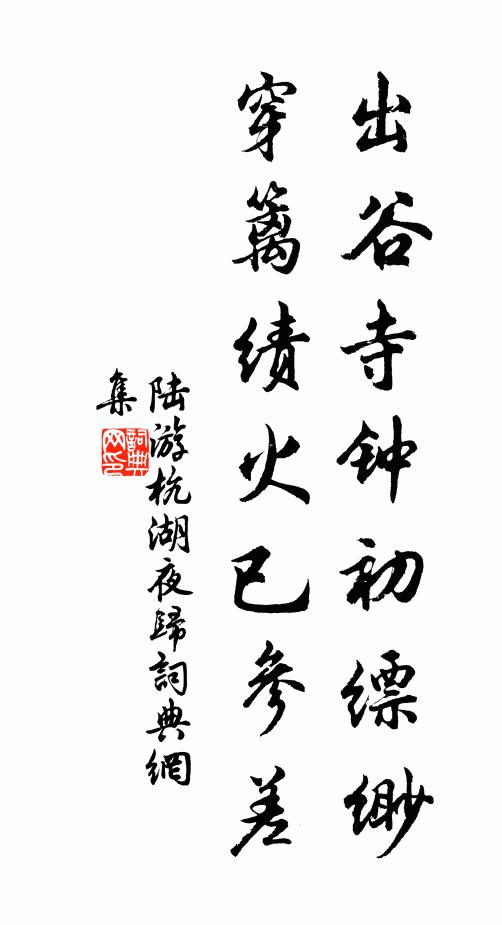 出谷寺钟初缥缈
穿篱绩火已参差
陆游杭湖夜歸詞典網
集
詞典
网印